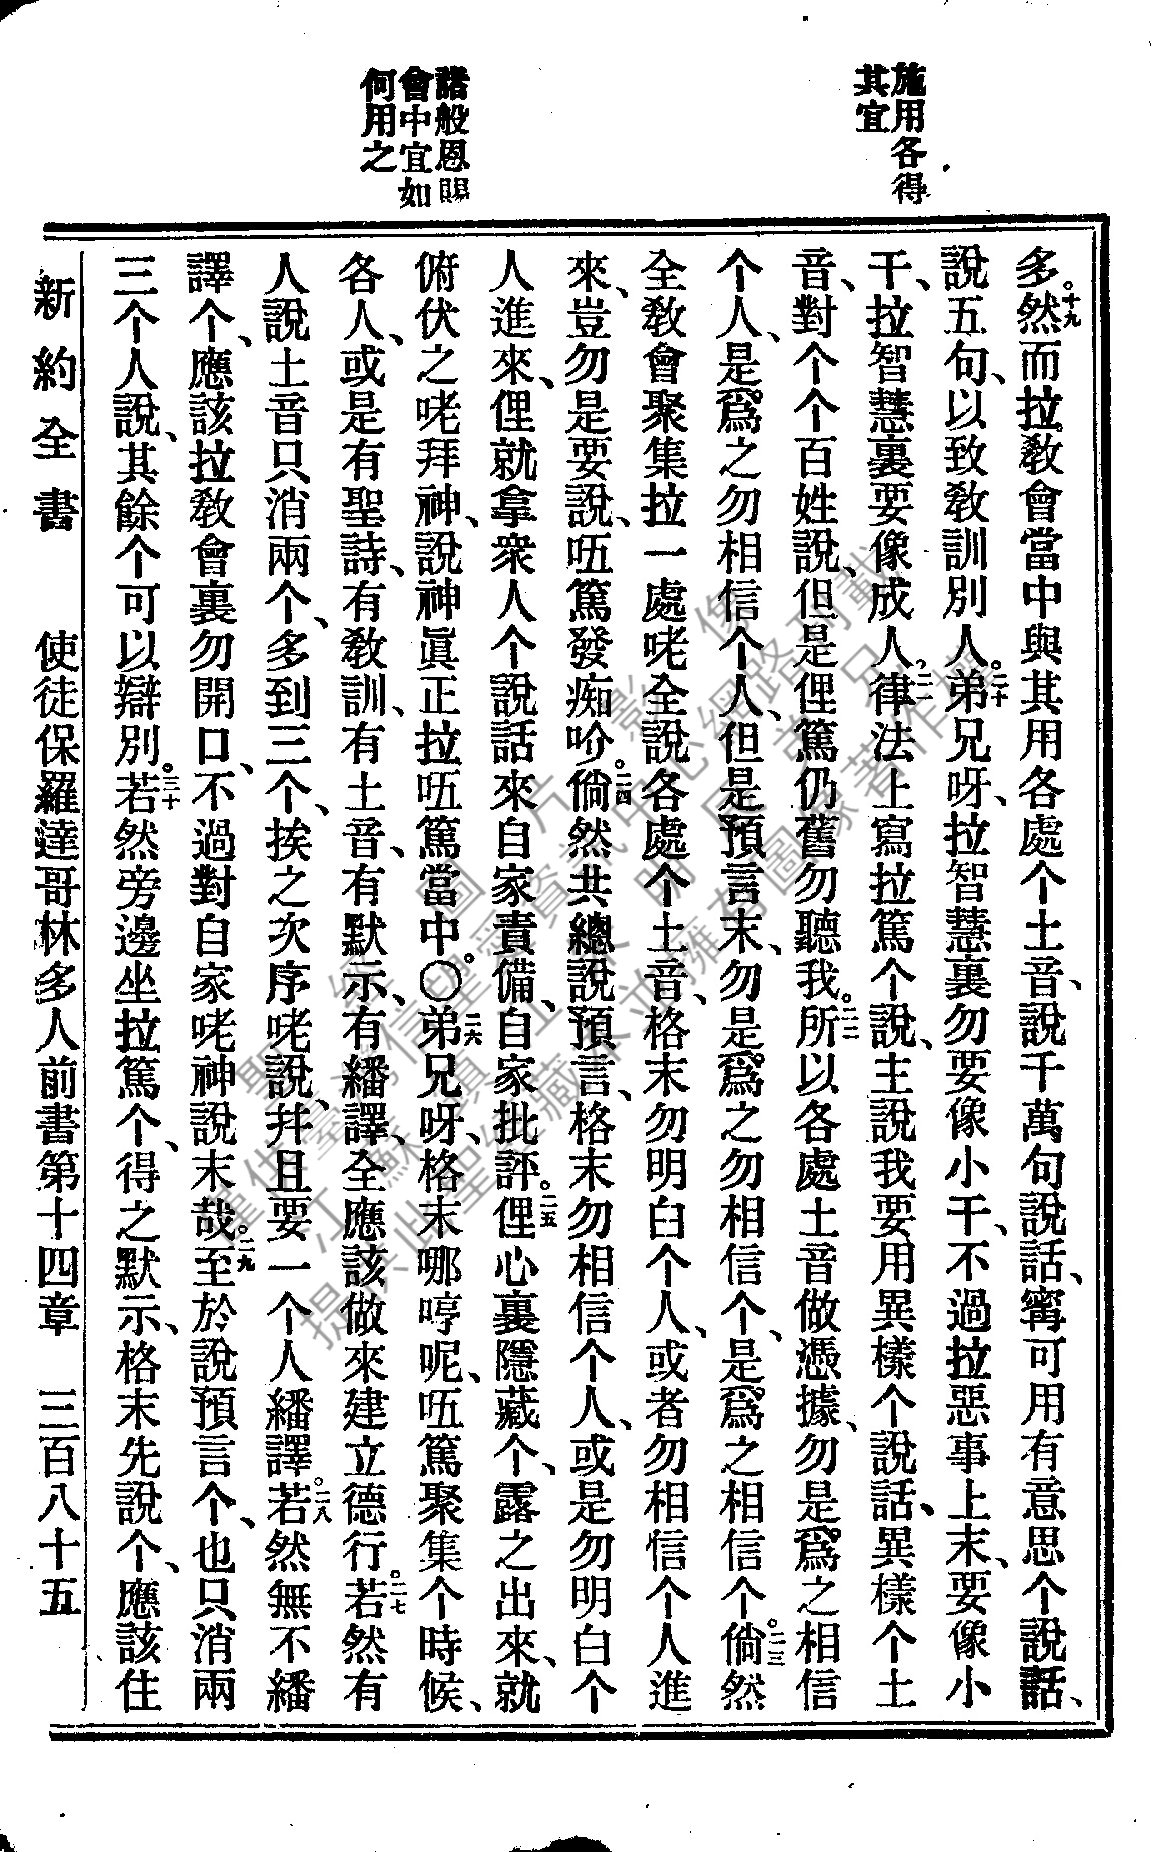 施用各得
其宜
諸般恩賜
會中宜如
何用之
多。十九然而拉教會當中與其用各處个土音、說千萬句說話、寗可用有意思个說話、
說五句、以致教訓別人。二十弟兄呀、拉智慧裏勿要像小干、不過拉惡事上末、要像小
干、拉智慧裏要像成人。二一律法上寫拉篤个說、主說我要用異樣个說話、異樣个土
音、對个个百姓說、但是俚篤仍舊勿聽我。二二所以各處土音做憑據、勿是爲之相信
个人、是爲之勿相信个人、但是預言末、勿是爲之勿相信个、是爲之相信个。二三倘然
全教會聚集拉一處咾全說各處个土音、格末勿明白个人、或者勿相信个人進
來、豈勿是要說、㕶篤發痴吤。二四倘然共總說預言、格末勿相信个人、或是勿明白个
人進來、俚就拿衆人个說話來自家責備、自家批評。二五俚心裏隱藏个、露之出來、就
俯伏之咾拜神、說神眞正拉㕶篤當中。○二六弟兄呀、格末哪哼呢、㕶篤聚集个時候、
各人、或是有聖詩、有教訓、有土音、有默示、有繙譯、全應該做來建立德行。二七若然有
人說土音只消兩个、多到三个、挨之次序咾說、幷且要一个人繙譯。二八若然無不繙
譯个、應該拉教會裏勿開口、不過對自家咾神說末哉。二九至於說預言个、也只消兩
三个人說、其餘个可以辯別。三十若然旁邊坐拉篤个、得之默示、格末先說个、應該住
新約全書 使徒保羅達哥林多人前書第十四章 三百八十五